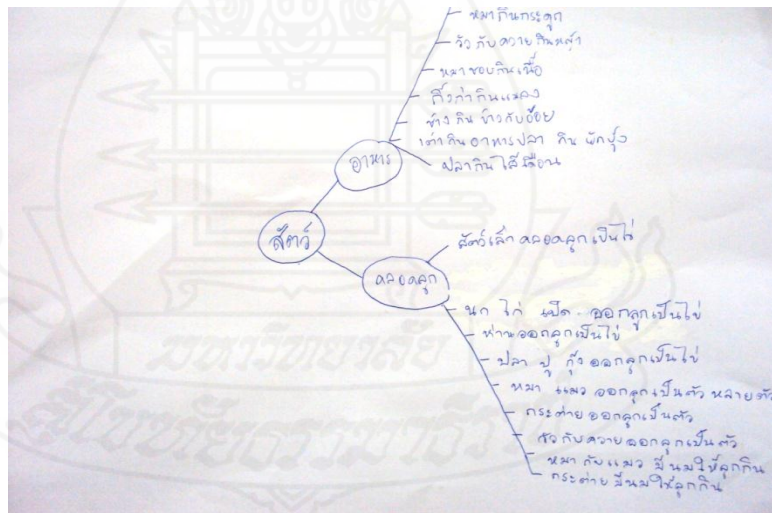 หมากินกระดูก
วัวกับควายกินหญ้า
หมาชอบกินเนื้อ
กิ้งก่ากินแมลง
ช้าง กิน ข้าวกับอ้อย
เต่ากินอาหารปลา กิน ผักบุ้ง
อาหาร
ปลากินไส้เดือน
สัตว์
สัตว์เล้า คลอดลูกเป็นไข่
คลอดลูก
นก ไก่ เป็ด ออกลูกเป็นไข่
ห่านออกลูกเป็นไข่
ปลา ปู กุ้ง ออกลูกเป็นไข่
หมา แมว ออกลูกเป็นตัว หลายตัว
กระต่ายออกลูกเป็นตัว
วัวกับควายออกลูกเป็นตัว
หมา กับแมว มีนมให้ลูกกิน
กระต่าย มีนมให้ลูกกิน
มหาวิทยาลัย
สุโขทัยธรรมาธิราช